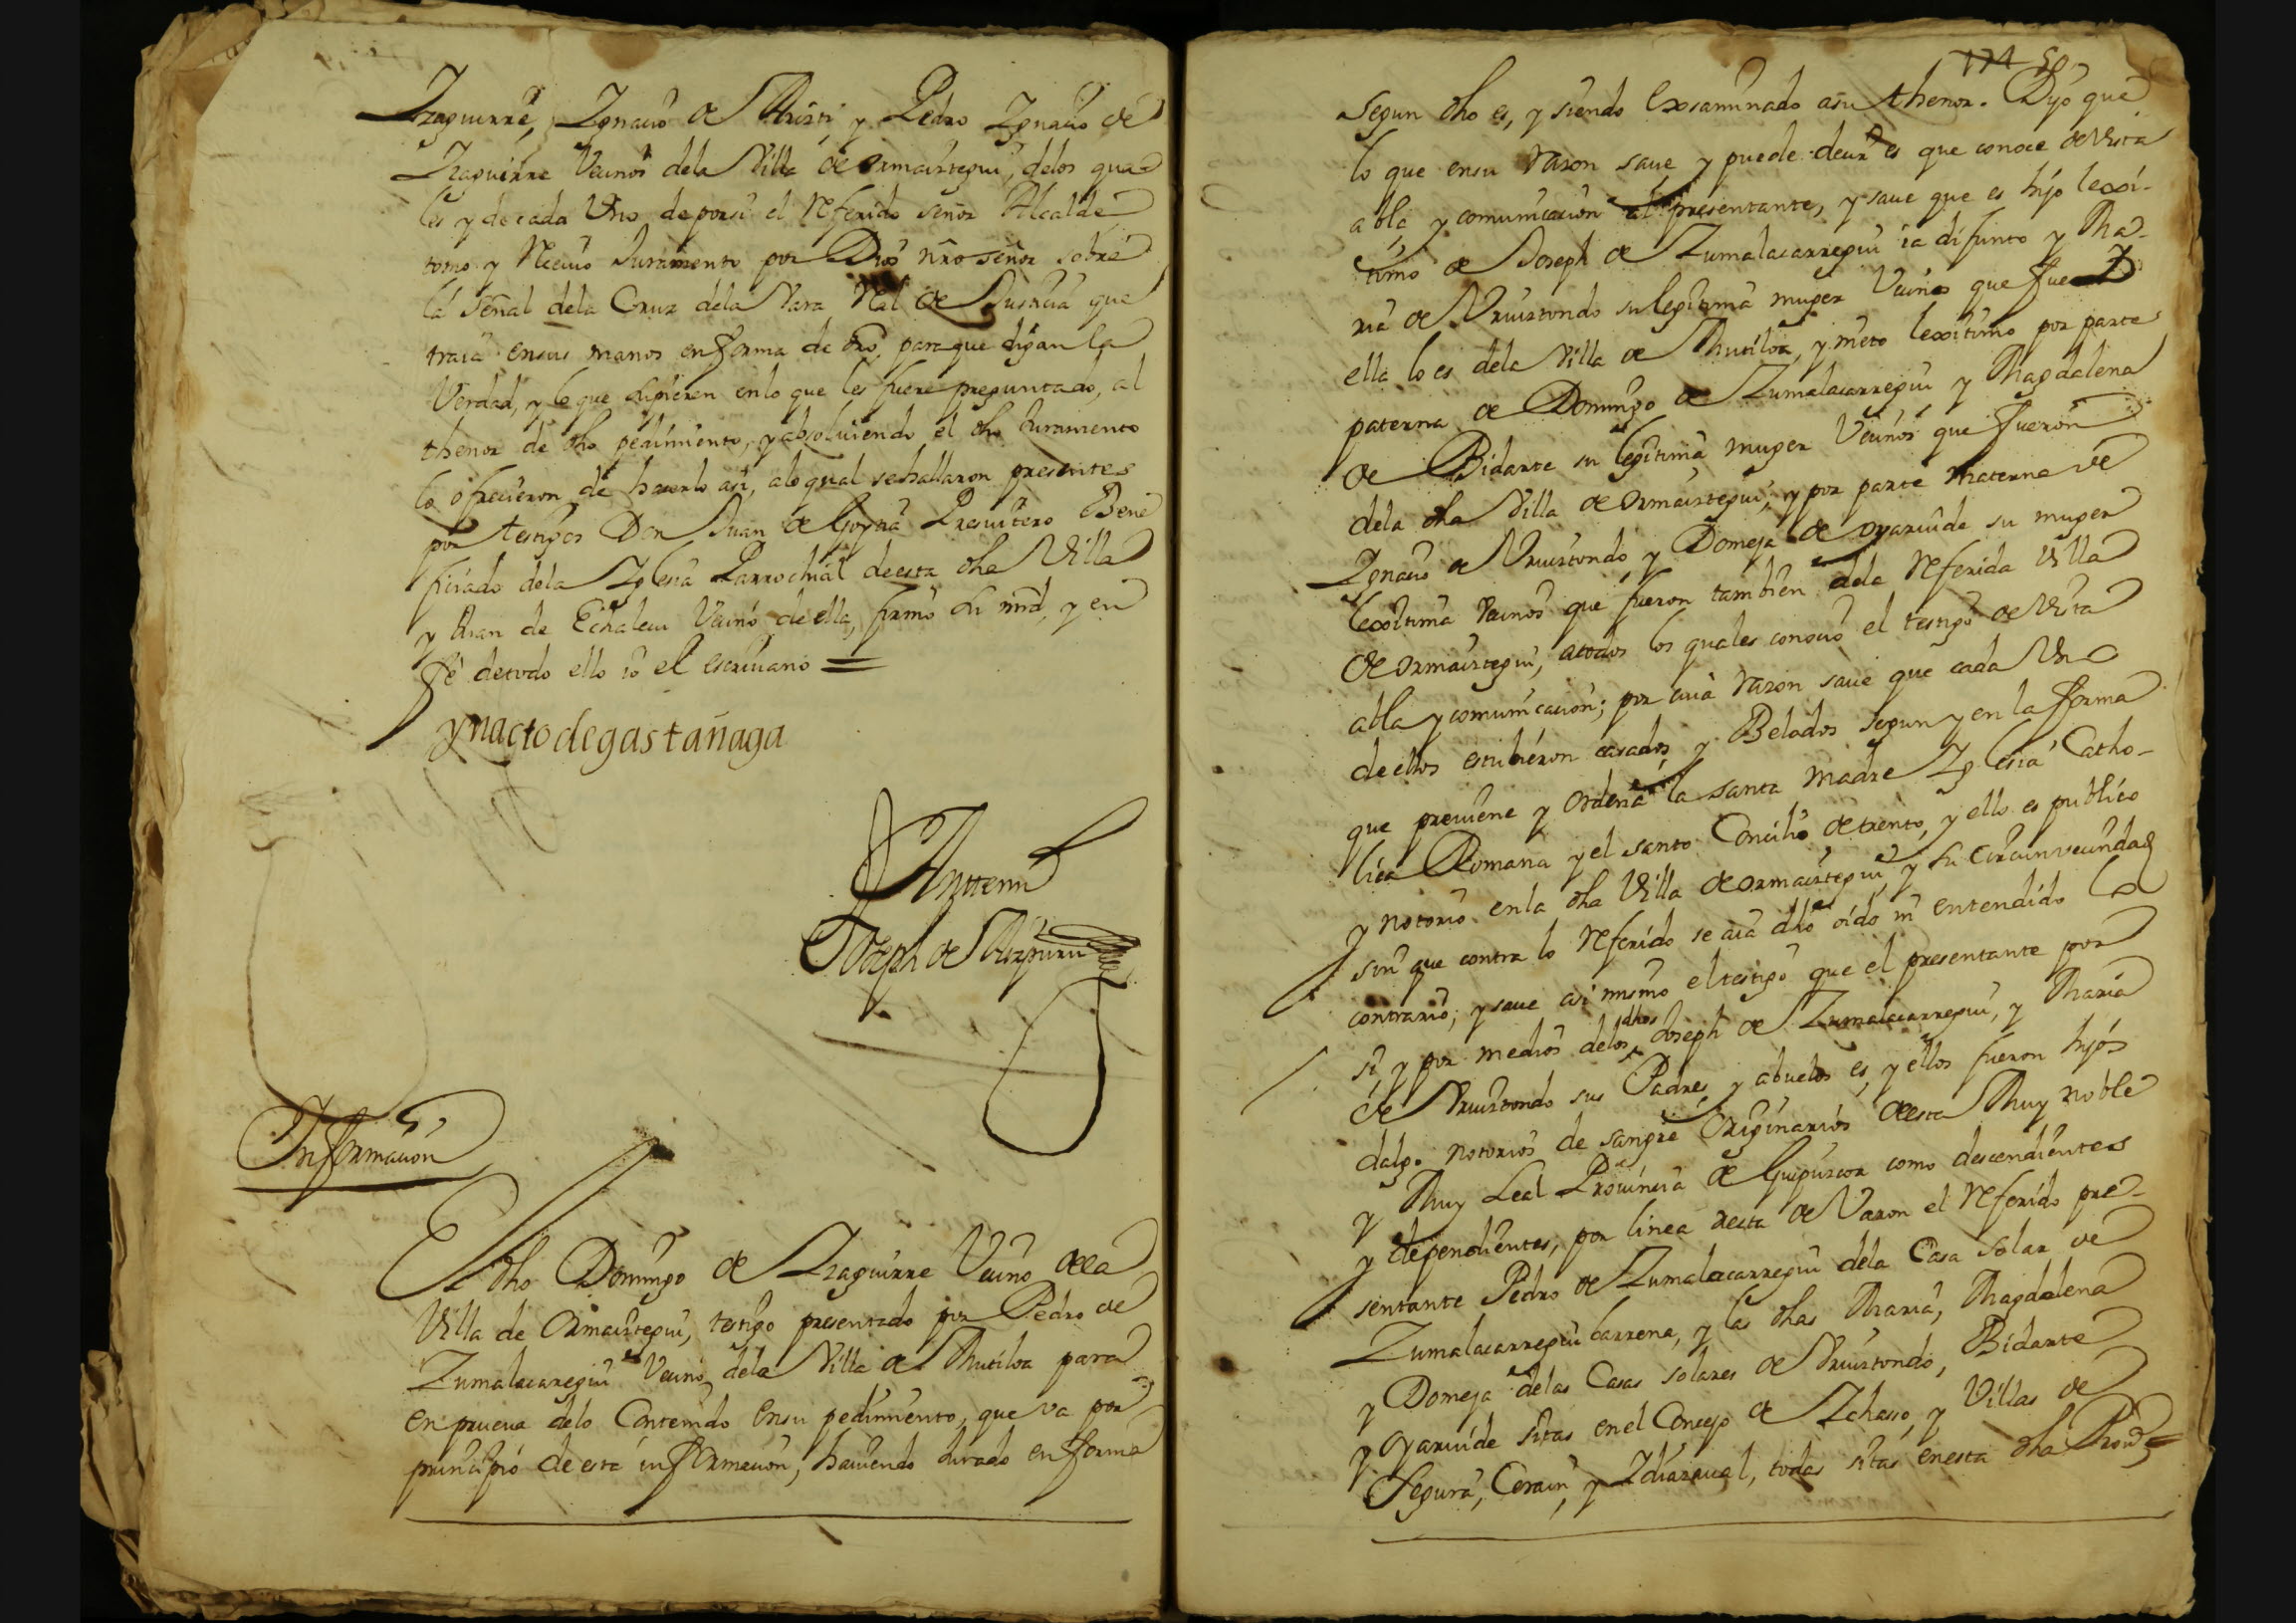 Yzaguirre, Ygnacio de Aristi y Pedro Ygnacio de
Yzaguirre Vecinos dela Villa de Ormaiztegui, delos qua-
les y de cada Uno de porsi el referido señor Alcalde
tomo y Reciuio Juramento por Dios nro señor sobre
la señal dela Cruz dela Vara Rl de Justicia que
traia ensus manos en forma de dro, para que digan la
Verdad, y lo que supieren en lo que les fuere preguntado, al
thenor de dho pedimiento, y absoluiendo el dho Juramento
lo ofrecieron de hacerlo asi, alo qual se hallaron presentes
por testigos Don Juan de Goyna Presuitero Bene
ficiado dela Yglesia Parrochial de esta dha Villa
y Juan de Echalecu Vecino de ella, firmo su mrd, y en
fe de todo ello io el escriuano =
ynacio de gastañaga
Antte mi
Joseph de Aizpuru
Informacion
El dho Domingo de Yzaguirre Vecino dela
Villa de Ormaiztegui, testigo presentado por Pedro de
Zumalacaregui Vecino dela Villa de Mutiloa para
en prueua delo Contenido ensu pedimiento, que va por
principio de esta informacion, hauiendo Jurado en forma
174 50
segun dho es, y siendo exsaminado asu thenor. Dijo que
lo que ensu razon saue y puede decir es que conoce de Vista
abla y comunicacion al presentante, y saue que es hijo lexi-
timo de Joseph de Zumalacarregui ia difunto y Ma-
ria de Vruiztondo su legitima muger Vecinos que fue y
ella lo es dela Villa de Mutiloa, y nieto lexitimo por parte
paterna de Domingo de Zumalacarregui y Magdalena
de Bidarte su legitima muger Vecinos que fueron
dela dha Villa de Ormaiztegui, y por parte Materna de
Ygnacio de Vruiztondo y Domeja de oyaruide su muger
lexitima Vecinos que fueron tambien dela referida Villa
de Ormaiztegui, atodos los quales conocio el testigo de Vista
abla y comunicacion; por cuia razon saue que cada Uno
de ellos estubieron casados y Belados segun y en la forma
que preuiene y Ordena la santa Madre Yglesia Catho-
lica Romana y el santo Concilio de trento, y ello es publico
y notorio enla dha Villa de Ormaiztegui y su Circunvecindad
sin que contra lo referido se aia dho oido ni entendido lo
contrario; y saue asi mismo el testigo que el presentante por
si y por medios delos dhos Joseph de Zumalacarregui, y Maria
de Vruiztondo sus Padres, y abuelos es, y ellos fueron hijos
dalgo notorios de sangre Originarios de esta Muy noble
y Muy Leal Prouincia de Guipuzcoa como descendientes
y dependientes, por linea recta de Varon el referido pre-
sentante Pedro de Zumalacarregui dela Casa solar de
Zumalacarregui barrena, y las dhas Maria, Magdalena
y Domeja delas Casas solares de Vruiztondo, Bidarte
y oyaruide sitas en el Concejo de Ychasso, y Villas de
Segura, Cerain, y Ydiazaual, todas sitas en esta dha Prou.ª